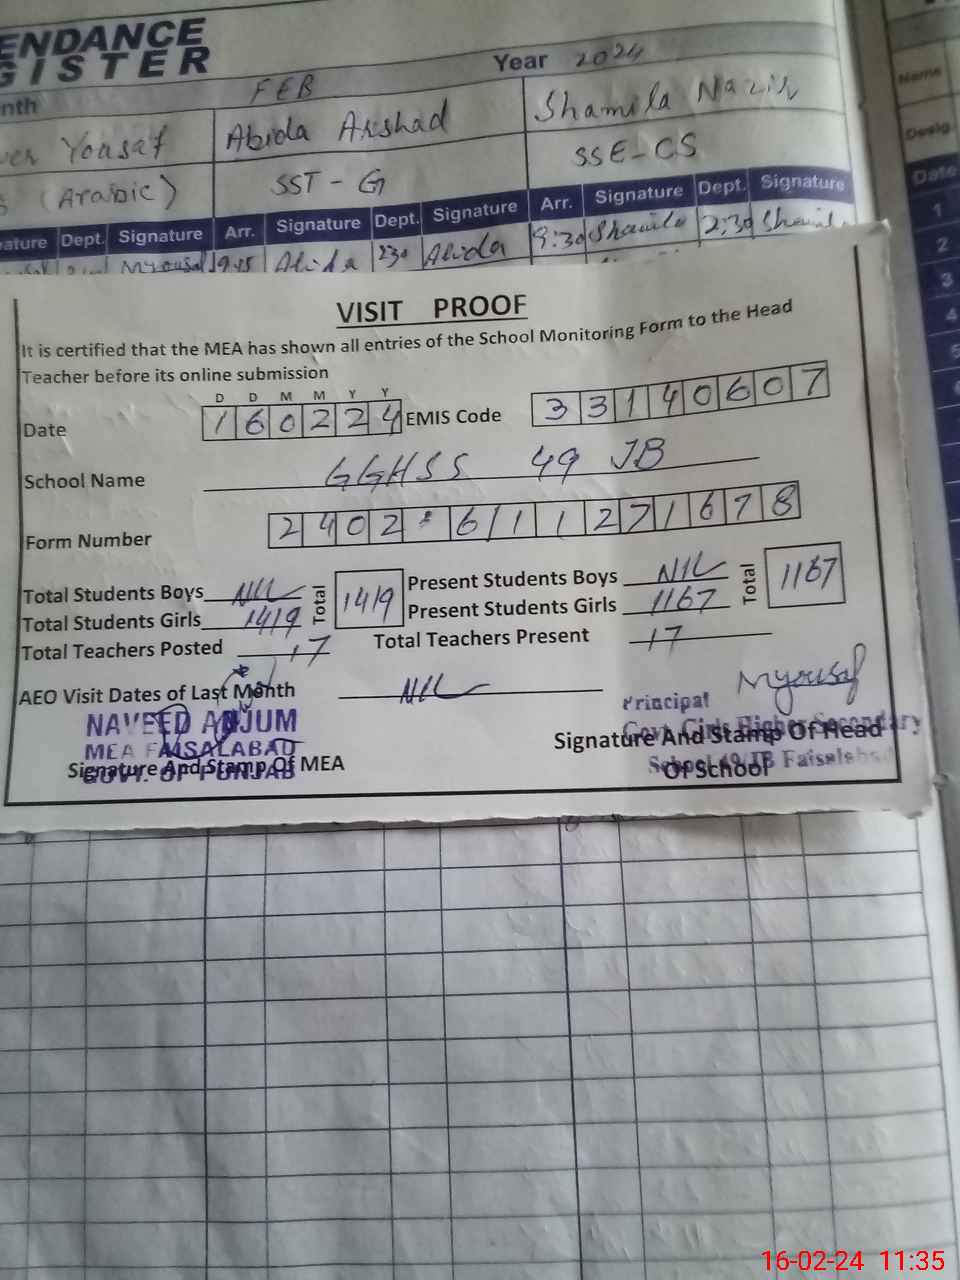 ENDANCE
GISTER
nth FEB Year 2024
Yousaf Abida Arshad Shamila Nazir
(Arabic) SST - G SSE-CS
ature Dept. Signature Arr. Signature Dept. Signature Arr. Signature Dept. Signature
Myousaf 9:45 Abida 2:30 Abida 9:30 Shamila 2:30 Shamila
Name
Desig.
Date
1
2
3
4
5
VISIT PROOF
It is certified that the MEA has shown all entries of the School Monitoring Form to the Head
Teacher before its online submission
D D M M Y Y
Date 160224 EMIS Code 33140607
School Name GGHSS 49 JB
Form Number 2402 6/11271678
Total Students Boys NIL Total 1419 Present Students Boys NIL Total 1167
Total Students Girls 1419 Present Students Girls 1167
Total Teachers Posted 17 Total Teachers Present 17
AEO Visit Dates of Last Month NIL
Myousaf
Principal
NAVEED ANJUM
Govt. Girls Higher Secondary
MEA FAISALABAD
Signature And Stamp Of Head
School 49/JB Faisalabad
Signature And Stamp Of MEA
Of School
GOVT. OF PUNJAB
16-02-24 11:35